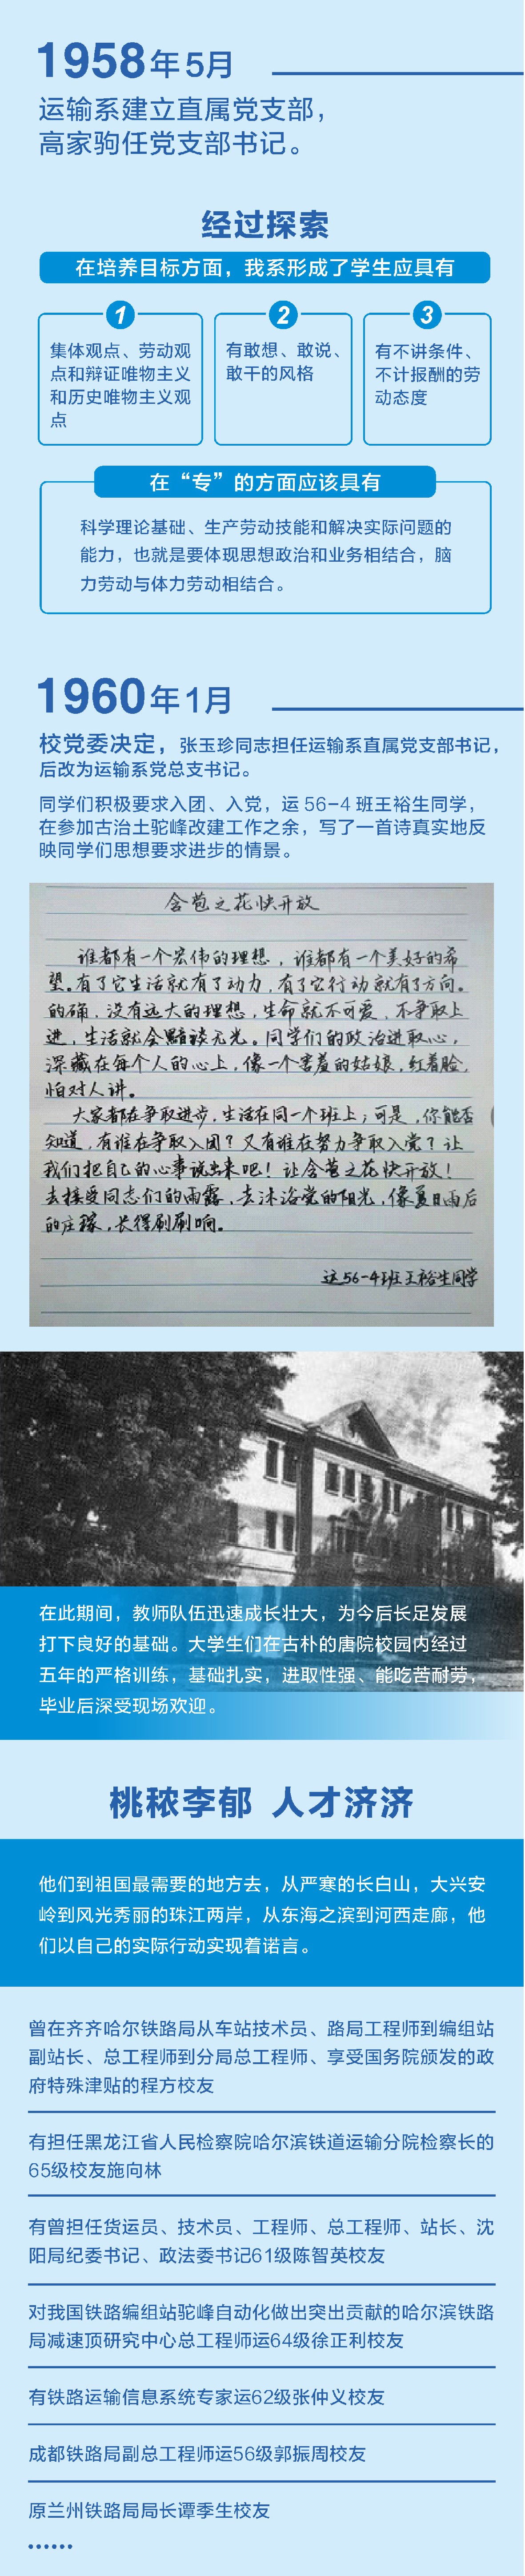 1958年5月
运输系建立直属党支部，
高家驹任党支部书记。
经过探索
在培养目标方面，我系形成了学生应具有
1
集体观点、劳动观
点和辩证唯物主义
和历史唯物主义观
点
2
有敢想、敢说、
敢干的风格
3
有不讲条件、
不计报酬的劳
动态度
在“专”的方面应该具有
科学理论基础、生产劳动技能和解决实际问题的
能力，也就是要体现思想政治和业务相结合，脑
力劳动与体力劳动相结合。
1960年1月
校党委决定，张玉珍同志担任运输系直属党支部书记，
后改为运输系党总支书记。
同学们积极要求入团、入党，运 56-4 班王裕生同学，
在参加古冶土驼峰改建工作之余，写了一首诗真实地反
映同学们思想要求进步的情景。
含苞之花快开放
谁都有一个宏伟的理想，谁都有一个美好的希
望。有了它生活就有了动力，有了它行动就有了方向。
的确，没有远大的理想，生命就不可爱，不争取上
进，生活就会黯谈无光。同学们的政治进取心，
深藏在每个人的心上，像一个害羞的姑娘，红着脸，
怕对人讲。
大家都在争取进步，生活在同一个班上；可是，你能否
知道，有谁在争取入团？又有谁在努力争取入党？让
我们把自己的心事说出来吧！让含苞之花快开放！
去接受同志们的雨露，去沐浴党的阳光，像夏日雨后
的庄稼，长得刷刷响。
运56-4班王裕生同学
在此期间，教师队伍迅速成长壮大，为今后长足发展
打下良好的基础。大学生们在古朴的唐院校园内经过
五年的严格训练，基础扎实，进取性强、能吃苦耐劳，
毕业后深受现场欢迎。
桃秾李郁 人才济济
他们到祖国最需要的地方去，从严寒的长白山，大兴安
岭到风光秀丽的珠江两岸，从东海之滨到河西走廊，他
们以自己的实际行动实现着诺言。
曾在齐齐哈尔铁路局从车站技术员、路局工程师到编组站
副站长、总工程师到分局总工程师、享受国务院颁发的政
府特殊津贴的程方校友
有担任黑龙江省人民检察院哈尔滨铁道运输分院检察长的
65级校友施向林
有曾担任货运员、技术员、工程师、总工程师、站长、沈
阳局纪委书记、政法委书记61级陈智英校友
对我国铁路编组站驼峰自动化做出突出贡献的哈尔滨铁路
局减速顶研究中心总工程师运64级徐正利校友
有铁路运输信息系统专家运62级张仲义校友
成都铁路局副总工程师运56级郭振周校友
原兰州铁路局局长谭季生校友
……